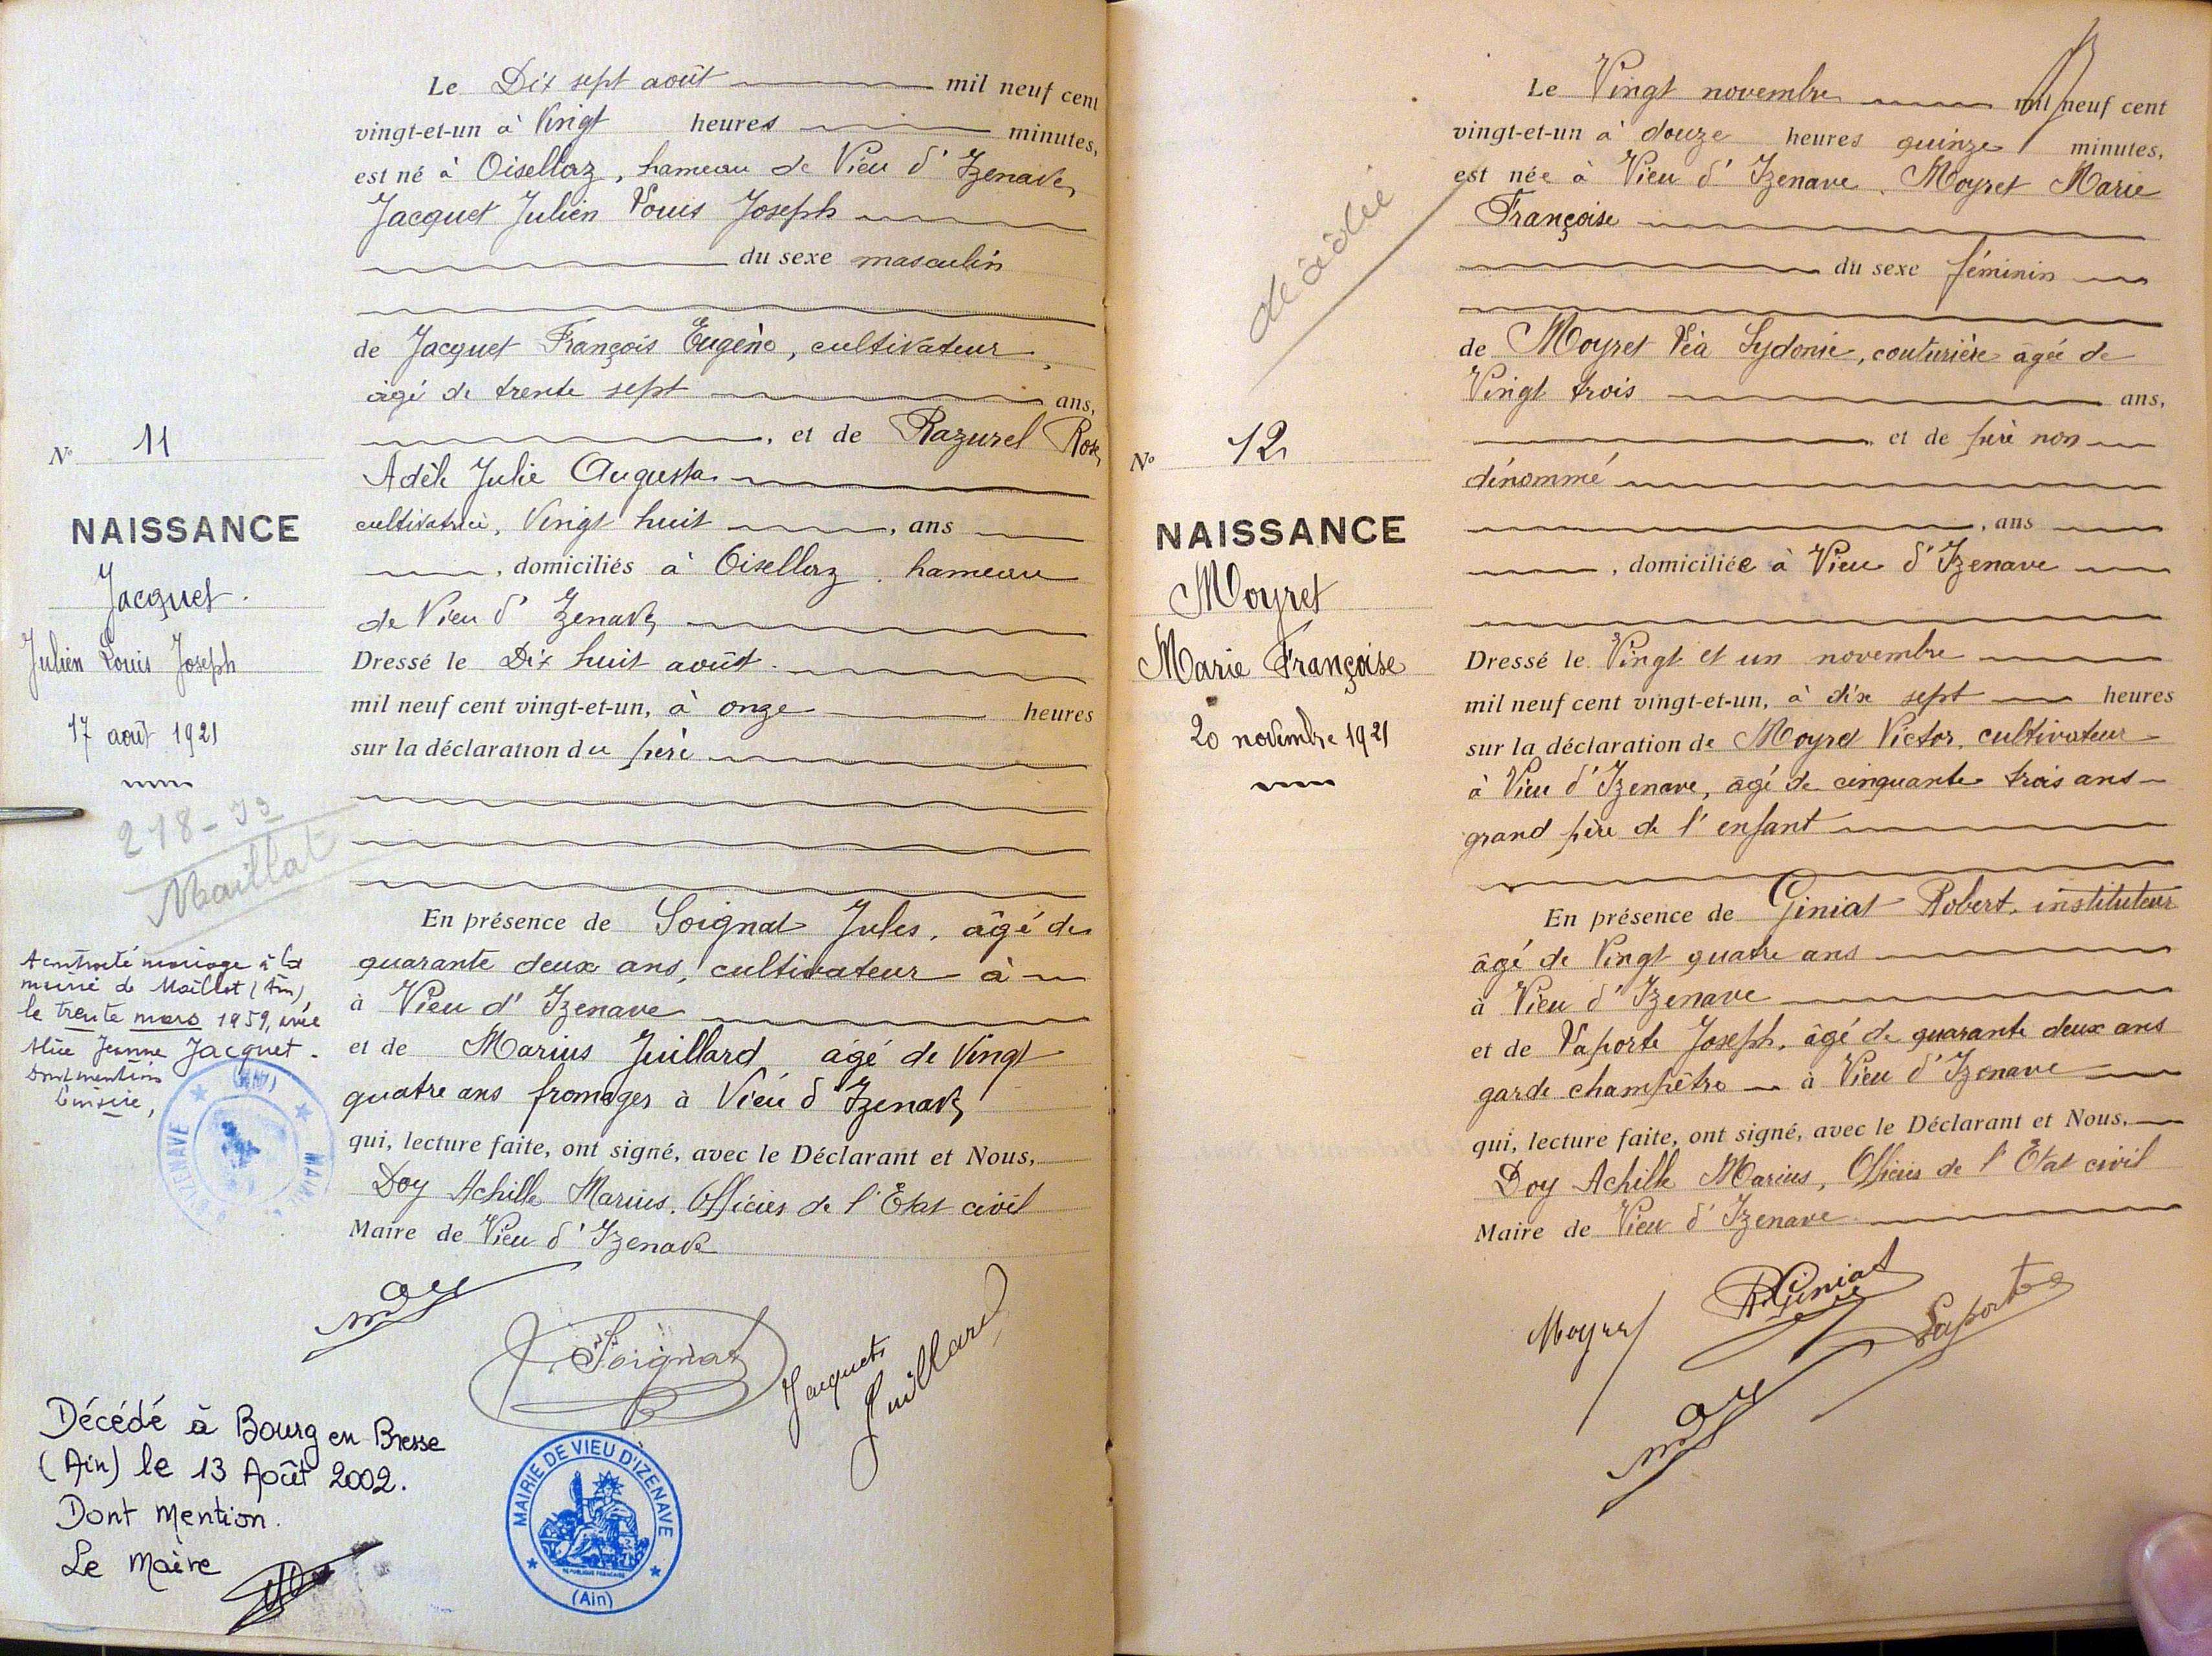 Le Dix sept août mil neuf cent
vingt-et-un à Vingt heures minutes,
est né à Oisellaz, hameau de Vieu d'Izenave,
Jacquet Julien Louis Joseph
du sexe masculin
de Jacquet François Eugène, cultivateur,
âgé de trente sept ans,
, et de Razurel Rose,
Adèle Julie Augusta
cultivatrice, Vingt huit , ans
, domiciliés à Oisellaz, hameau
de Vieu d'Izenave
Dressé le Dix huit août
mil neuf cent vingt-et-un, à onze heures
sur la déclaration du père
En présence de Soignat Jules, âgé de
quarante deux ans, cultivateur à
à Vieu d'Izenave
et de Marius Juillard, âgé de Vingt
quatre ans fromager à Vieu d'Izenave
qui, lecture faite, ont signé, avec le Déclarant et Nous,
Doy Achille Marius, Officier de l'Etat civil
Maire de Vieu d'Izenave
J. Soignat
Jacquet
Juillard
N° 11
NAISSANCE
Jacquet
Julien Louis Joseph
17 août 1921
218 -
Maillat
A contracté mariage à la
mairie de Maillat (Ain)
le trente mars 1959, avec
Alice Jeanne Jacquet.
Dont mention
(AIN)
IZENAVE
MAIRIE
Décédé à Bourg en Bresse
(Ain) le 13 Août 2002.
Dont mention.
Le Maire
MAIRIE DE VIEU D'IZENAVE
REPUBLIQUE FRANCAISE
(Ain)
Le Vingt novembre mil neuf cent
vingt-et-un à douze heures quinze minutes,
est née à Vieu d'Izenave, Moyret Marie
Françoise
du sexe féminin
de Moyret Léa Sydonie, couturière âgée de
Vingt trois ans,
, et de père non
dénommé
, ans
, domiciliée à Vieu d'Izenave
Dressé le Vingt et un novembre
mil neuf cent vingt-et-un, à dix sept heures
sur la déclaration de Moyret Victor, cultivateur
à Vieu d'Izenave, âgé de cinquante trois ans
grand père de l'enfant
En présence de Giniat Robert, instituteur
âgé de Vingt quatre ans
à Vieu d'Izenave
et de Laporte Joseph, âgé de quarante deux ans
garde champêtre à Vieu d'Izenave
qui, lecture faite, ont signé, avec le Déclarant et Nous,
Doy Achille Marius, Officier de l'Etat civil
Maire de Vieu d'Izenave
Moyret
R Giniat
Laporte
N° 12
NAISSANCE
Moyret
Marie Françoise
20 novembre 1921